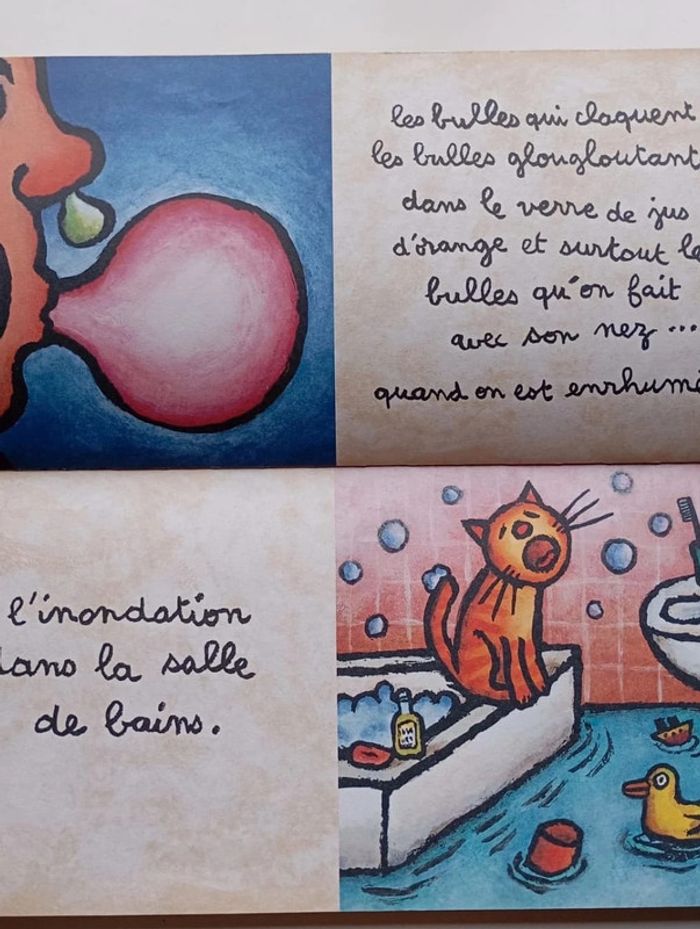 les bulles qui claquent
les bulles glougloutant
dans le verre de jus
d'orange et surtout le
bulles qu'on fait
avec son nez ...
quand on est enrhumé
l'inondation
dans la salle
de bains.